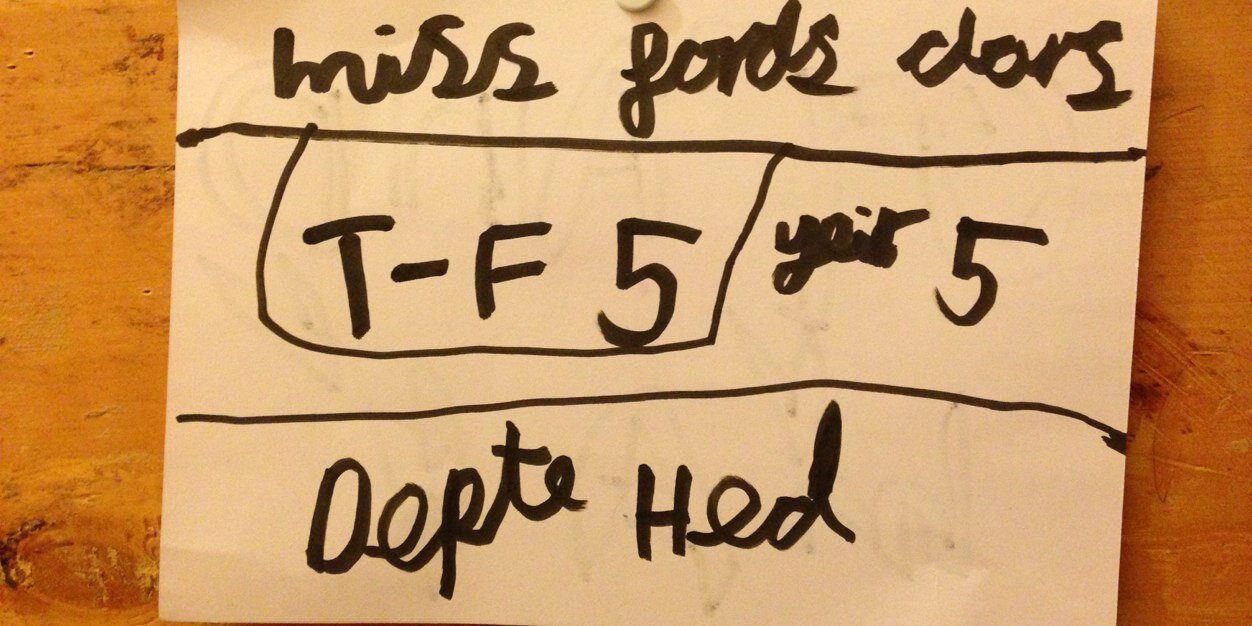 miss fords clars
T-F 5 yeir 5
Depte Hed